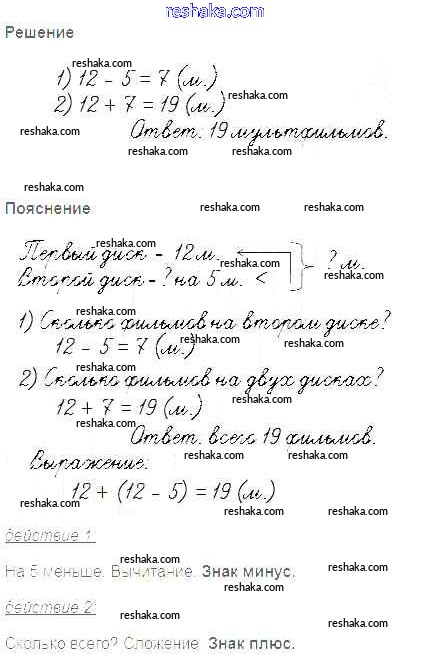 reshaka.com
Решение
reshaka.com
1) 12 - 5 = 7 (м.)
reshaka.com
2) 12 + 7 = 19 (м.)
reshaka.com
reshaka.com
Ответ: 19 мультфильмов.
reshaka.com reshaka.com
reshaka.com
Пояснение
reshaka.com reshaka.com
reshaka.com
Первый диск - 12 м.
reshaka.com
? м.
Второй диск - ? на 5 м. <
reshaka.com
reshaka.com
1) Сколько фильмов на втором диске?
12 - 5 = 7 (м.)
reshaka.com reshaka.com
reshaka.com
2) Сколько фильмов на двух дисках?
reshaka.com
12 + 7 = 19 (м.)
reshaka.com
Ответ: всего 19 фильмов.
reshaka.com reshaka.com
Выражение:
12 + (12 - 5) = 19 (м.)
reshaka.com
reshaka.com reshaka.com
действие 1:
reshaka.com reshaka.com
На 5 меньше. Вычитание. Знак минус.
действие 2:
reshaka.com
reshaka.com
Сколько всего? Сложение. Знак плюс.